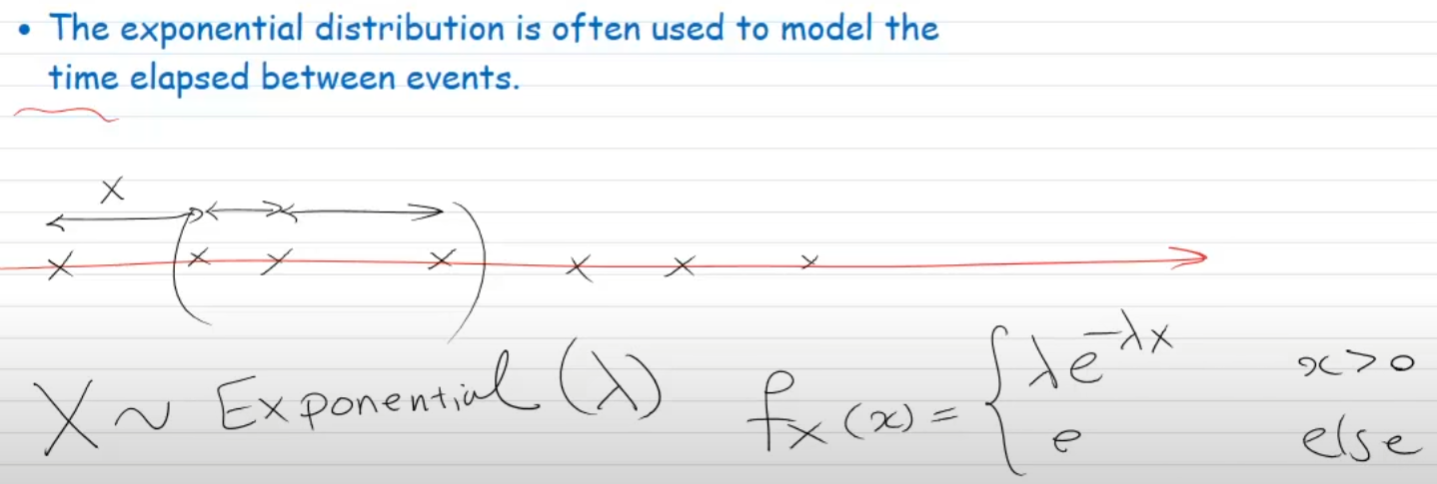 • The exponential distribution is often used to model the
time elapsed between events.
X
x x y x x x x
X ~ Exponential (λ) fX (x) = { λe^-λx x>0
e else